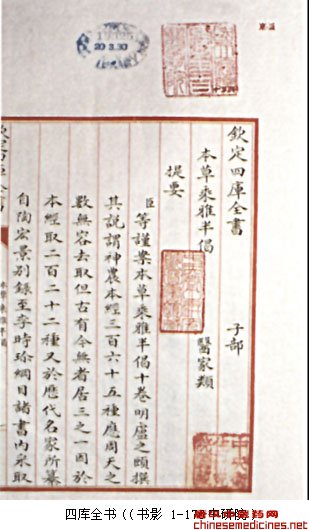 欽定四庫全書
子部
本草乘雅半偈
醫家類
提要
臣等謹案本草乘雅半偈十卷明盧之頤撰
其說謂神農本經三百六十五種應周天之
數無容去取但古有今無者居三之一因於
本經取二百二十二種又於歷代名家所纂
自陶宏景別錄至李時珍綱目諸書內采取
四库全书((书影 1-17
chinesemedicines.net